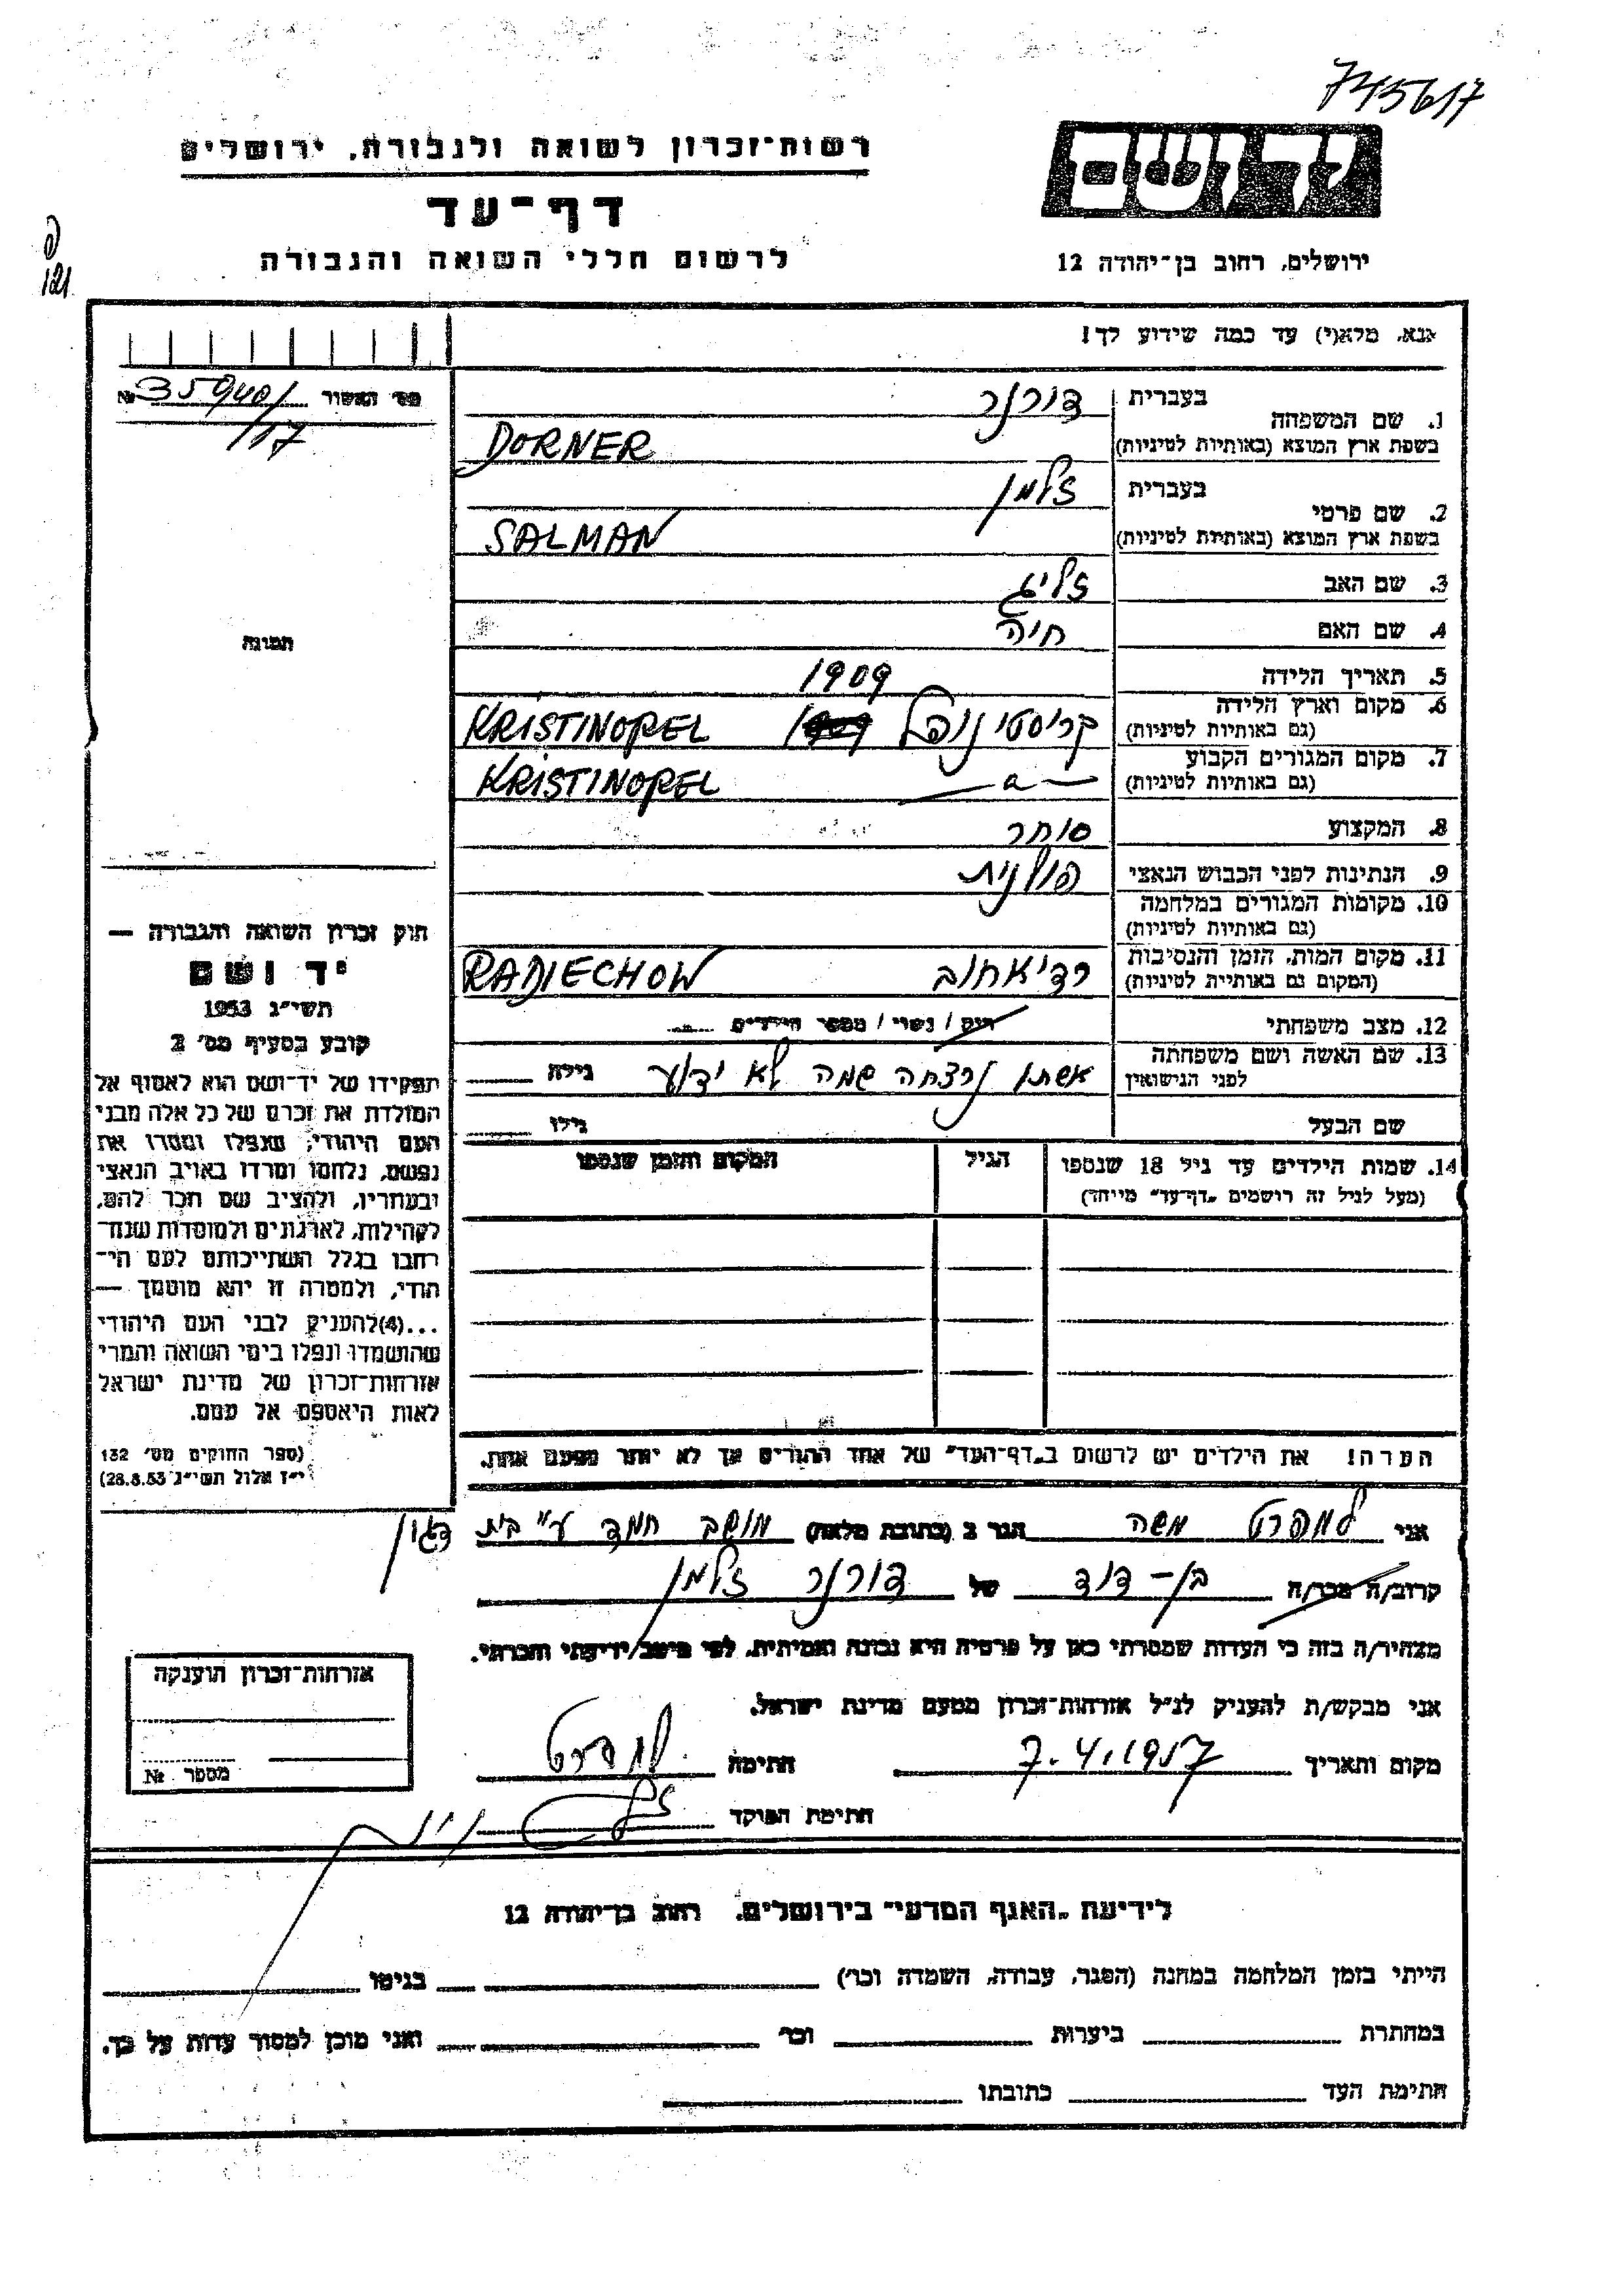 745617
רשות־זכרון לשואה ולגבורה, ירושלים
יד ושם
דף־עד
לרשום חללי השואה והגבורה
ירושלים, רחוב בן־יהודה 12
121
אנא, מלא(י) עד כמה שידוע לך!
מס׳ האשור № 35940/
/17
תמונה
1. שם המשפחה
בעברית דורנר
בשפת ארץ המוצא (באותיות לטיניות) DORNER
2. שם פרטי
בעברית זלמן
בשפת ארץ המוצא (באותיות לטיניות) SALMAN
3. שם האב זליג
4. שם האם חיה
5. תאריך הלידה 1909
6. מקום וארץ הלידה קריסטינופל KRISTINOPEL
(גם באותיות לטיניות)
7. מקום המגורים הקבוע KRISTINOPEL
(גם באותיות לטיניות)
8. המקצוע סוחר
9. הנתינות לפני הכבוש הנאצי פולנית
10. מקומות המגורים במלחמה
(גם באותיות לטיניות)
11. מקום המות, הזמן והנסיבות רדיאחוב RADIECHOW
(המקום גם באותיות לטיניות)
12. מצב משפחתי רוק / נשוי / מספר הילדים
13. שם האשה ושם משפחתה אשתו נרצחה שמה לא ידוע גילה
לפני הנישואין
שם הבעל גילו
14. שמות הילדים עד גיל 18 שנספו הגיל המקום והזמן שנספו
(מעל לגיל זה רושמים „דף־עד״ מיוחד)
הערה! את הילדים יש לרשום ב„דף־העד״ של אחד ההורים אך לא יותר מפעם אחת.
חוק זכרון השואה והגבורה —
יד ושם
תשי״ג 1953
קובע בסעיף מס׳ 2
תפקידו של יד־ושם הוא לאסוף אל
המולדת את זכרם של כל אלה מבני
העם היהודי, שנפלו ומסרו את
נפשם, נלחמו ומרדו באויב הנאצי
ובעוזריו, ולהציב שם וזכר להם,
לקהילות, לארגונים ולמוסדות שנח־
רבו בגלל השתייכותם לעם הי־
הודי, ולמטרה זו יהא מוסמך —
...(4)להעניק לבני העם היהודי
שהושמדו ונפלו בימי השואה והמרי
אזרחות־זכרון של מדינת ישראל
לאות היאספם אל עמם.
(ספר החוקים מס׳ 132
י״ז אלול תשי״ג 28.8.53)
אני למפרט משה הגר ב (כתובת מלאה) מושב חמד ע״י בית דגון
קרוב/ה מכר/ה בן־דוד של דורנר זלמן
מצהיר/ה בזה כי העדות שמסרתי כאן על פרטיה היא נכונה ואמיתית, לפי מיטב ידיעתי והכרתי.
אני מבקש/ת להעניק לנ״ל אזרחות־זכרון מטעם מדינת ישראל.
מקום ותאריך 7.4.1957 חתימה למפרט
חתימת הפוקד
אזרחות־זכרון הוענקה
מספר №
לידיעת „האגף המדעי״ בירושלים, רחוב בן־יהודה 12
הייתי בזמן המלחמה במחנה (הסגר, עבודה, השמדה וכר׳) בגיטו
במחתרת ביערות וכר׳ ואני מוכן למסור עדות על כך.
חתימת העד כתובתו